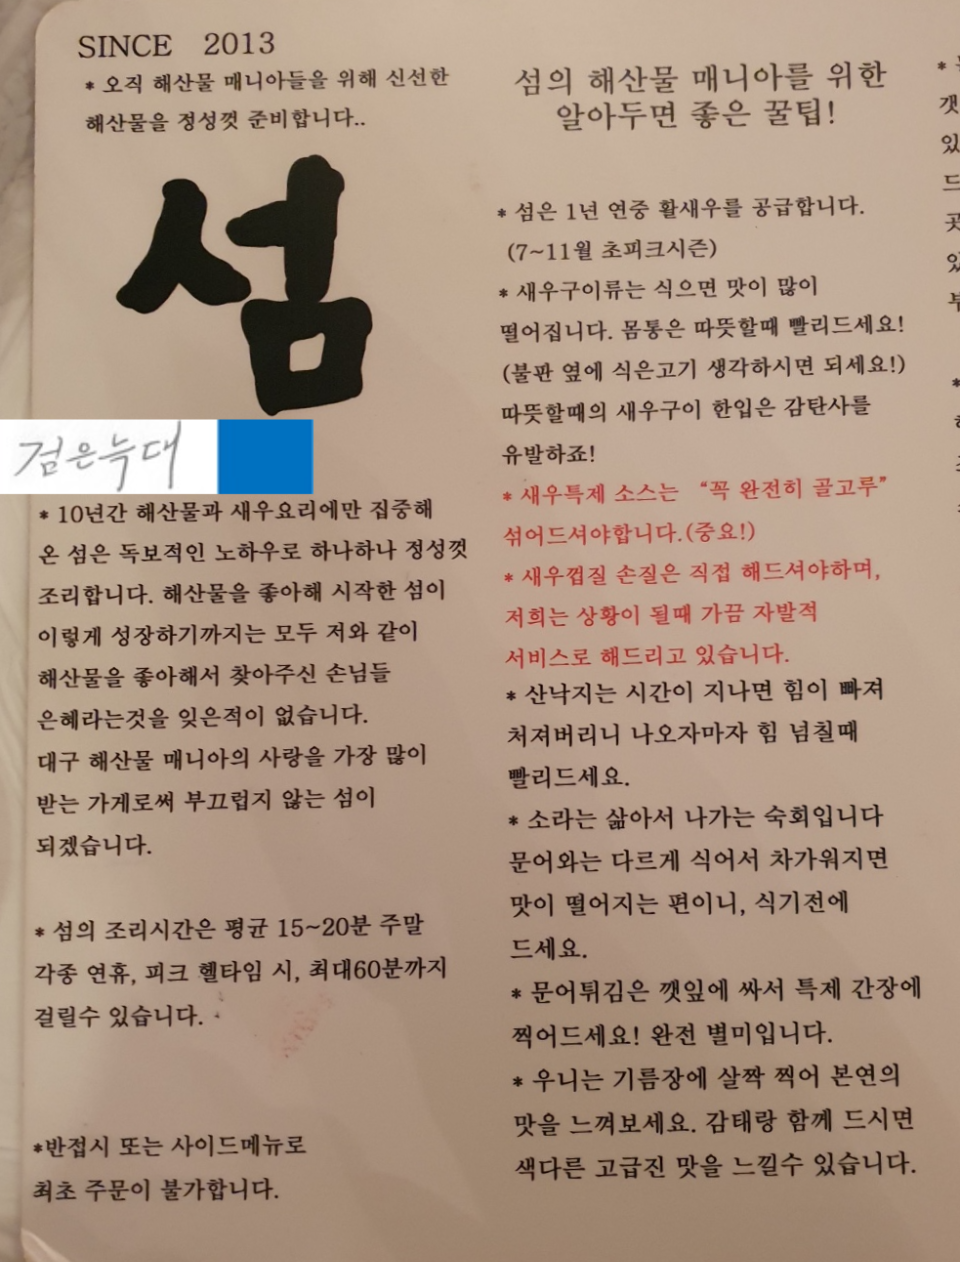 SINCE 2013
* 오직 해산물 매니아들을 위해 신선한
해산물을 정성껏 준비합니다..
섬
검은늑대
* 10년간 해산물과 새우요리에만 집중해
온 섬은 독보적인 노하우로 하나하나 정성껏
조리합니다. 해산물을 좋아해 시작한 섬이
이렇게 성장하기까지는 모두 저와 같이
해산물을 좋아해서 찾아주신 손님들
은혜라는것을 잊은적이 없습니다.
대구 해산물 매니아의 사랑을 가장 많이
받는 가게로써 부끄럽지 않는 섬이
되겠습니다.
* 섬의 조리시간은 평균 15~20분 주말
각종 연휴, 피크 헬타임 시, 최대60분까지
걸릴수 있습니다.
*반접시 또는 사이드메뉴로
최초 주문이 불가합니다.
섬의 해산물 매니아를 위한
알아두면 좋은 꿀팁!
* 섬은 1년 연중 활새우를 공급합니다.
(7~11월 초피크시즌)
* 새우구이류는 식으면 맛이 많이
떨어집니다. 몸통은 따뜻할때 빨리드세요!
(불판 옆에 식은고기 생각하시면 되세요!)
따뜻할때의 새우구이 한입은 감탄사를
유발하죠!
* 새우특제 소스는 “꼭 완전히 골고루”
섞어드셔야합니다.(중요!)
* 새우껍질 손질은 직접 해드셔야하며,
저희는 상황이 될때 가끔 자발적
서비스로 해드리고 있습니다.
* 산낙지는 시간이 지나면 힘이 빠져
처져버리니 나오자마자 힘 넘칠때
빨리드세요.
* 소라는 삶아서 나가는 숙회입니다
문어와는 다르게 식어서 차가워지면
맛이 떨어지는 편이니, 식기전에
드세요.
* 문어튀김은 깻잎에 싸서 특제 간장에
찍어드세요! 완전 별미입니다.
* 우니는 기름장에 살짝 찍어 본연의
맛을 느껴보세요. 감태랑 함께 드시면
색다른 고급진 맛을 느낄수 있습니다.